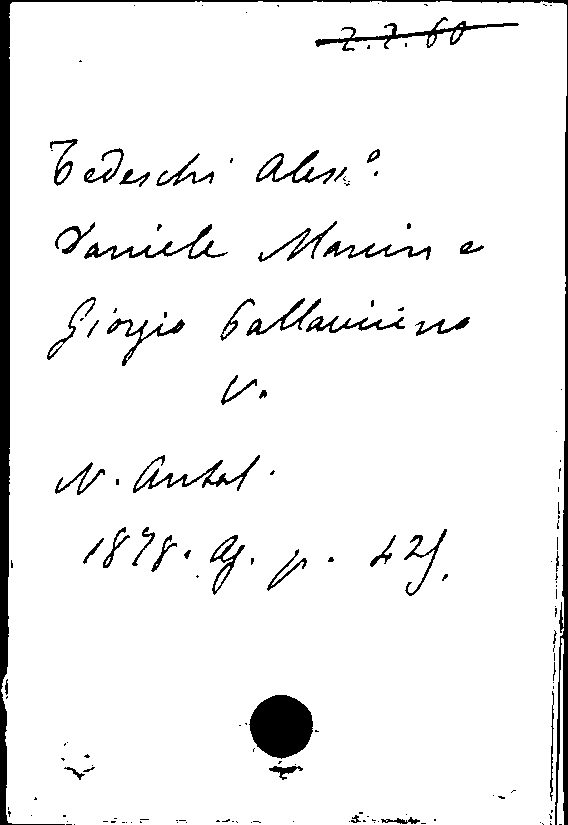 Z.Z.60
Tedeschi Aless.º
Daniele Manin e
Giorgio Pallavicino
V.
N. Antol.
1878. Ag. p. 425.